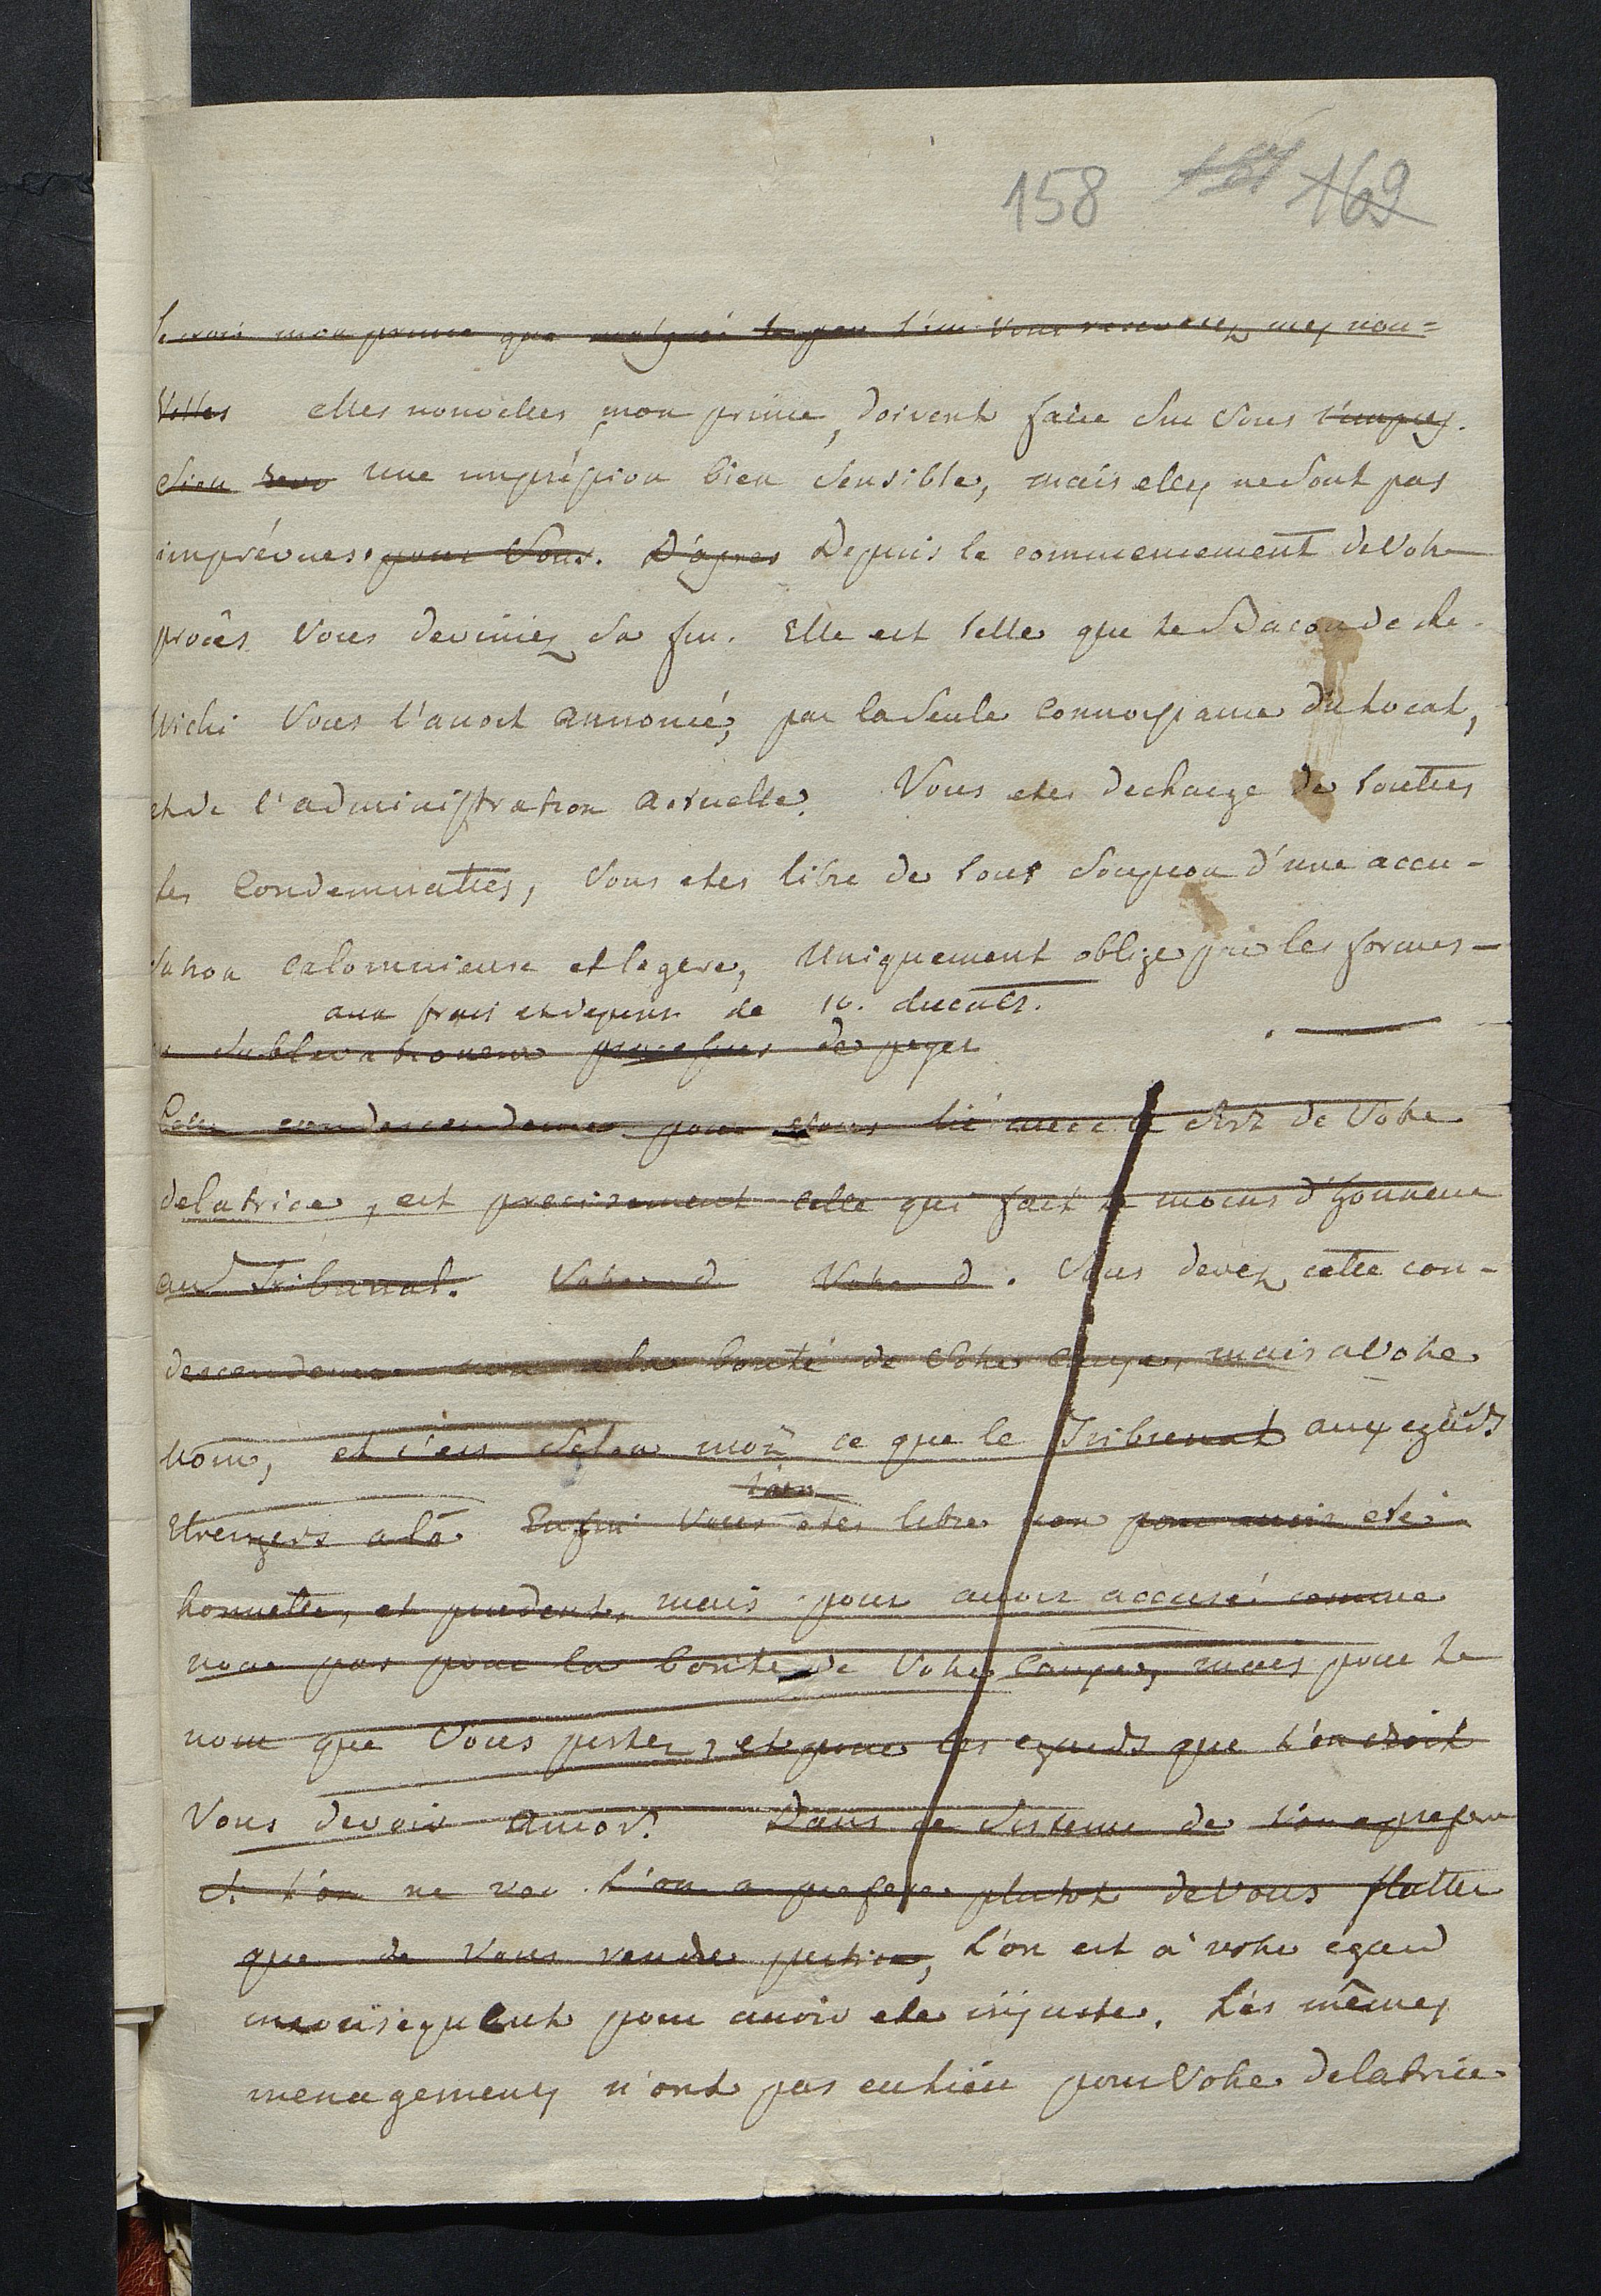 158 169
Je crois mon prince que malgré l'on vous recevrez mes nou-
velles elles nouvelles mon prince, doivent faire sur vous l'impres.
sion une impression bien sensible, mais elles ne sont pas
imprévues pour vous. D'apres Depuis le commencement de Votre
procès vous deviniez sa fin. Elle est telle que le de
vous l'avoit annoncé, par la seule connoissance du local,
et de l'administration actuelle. Vous etes decharge de toutes
les Condemnaties, vous etes libre de tout soupçon d'une accu-
sation calomnieuse et legere, Uniquement oblige par les formes
aux frais et depens de 10. ducats.
de payer
condescendence pour vous avec le de Votre
delatrice, est precisement celle qui fait le moins d'honneur
au Tribunal. Votre d Votre d. Vous devez cette con-
descendence non a la bonté de Votre cause, mais a Votre
nom, et c'est selon moi ce que le Tribunal aux egards
etrangers a la Enfin vous etes libre non pour avoir eté
honnette, et prudent, mais pour avoir accusé comme
non pas pour la bonté de Votre cause, mais pour le
nom que Vous portez, et pour les egards que l'on croit
Vous devoir Dans le sisteme de l'on a prefere
Si l'on ne l'on a prefere plutot de vous flatter
que de vous rendre justice, l'on est à votre egard
inconsequent pour avoir ete injuste. Les mêmes
menagemens n'ont pas eu lieu pour Votre delatrice